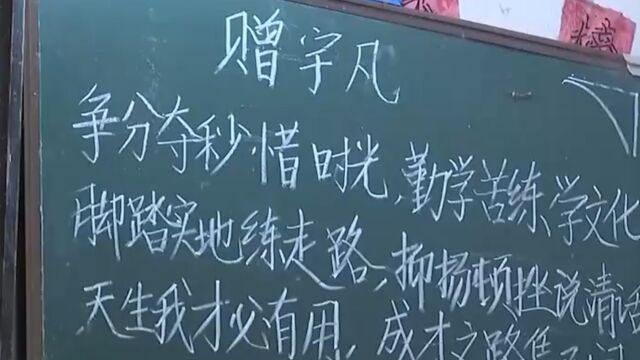 赠宇凡
争分夺秒惜时光,勤学苦练、学文化
脚踏实地练走路、抑扬顿挫说清话
天生我才必有用,成才之路